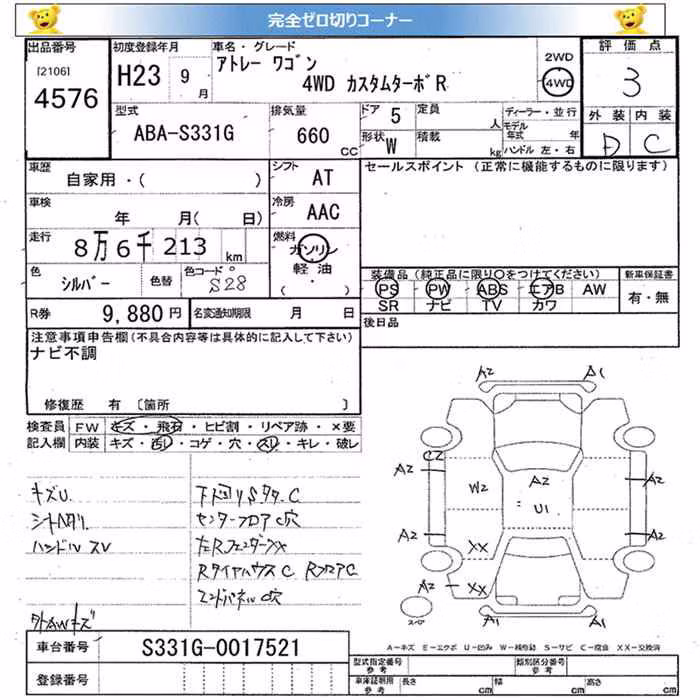 完全ゼロ切りコーナー
出品番号 初度登録年月 車名・グレード 評価点
[2106] 4576
H23 9月
アトレー ワゴン
4WD カスタムターボR
2WD
4WD
3
型式 ABA-S331G
排気量 660 CC
ドア 5 定員 人
形状 W 積載 kg
ディーラー・並行
モデル年式 年
ハンドル 左・右
外装 内装
D C
車歴 自家用・( )
シフト AT
セールスポイント (正常に機能するものに限ります)
車検 年 月( 日)
冷房 AAC
走行 8万6千213 km
燃料 ガソリン
軽油
( ・ )
色 シルバー 色替 色コード S28
装備品 (純正品に限り○をつけてください) 新車保証書
PS PW ABS エアB AW
SR ナビ TV カワ
有・無
R券 9,880円 名変通知期限 月 日
後日品
注意事項申告欄(不具合内容等は具体的に記入して下さい)
ナビ不調
修復歴 有 〔箇所 〕
検査員記入欄
FW キズ・飛石・ヒビ割・リペア跡・×要
内装 キズ・・コゲ・穴・スリ・キレ・破レ
キズU
シートヘタリ
ハンドルスレ
下回りSタタC
センターフロアC穴
左Rフェンダーxx
RタイヤハウスC RフロアC
エンドパネルC穴
A2 A1
C2
A2 W2 A2 A2
U1
A2 XX A2
A2 XX
A1 A1
スペア
A-キズ E-エクボ U-凹み W-補修跡 S-サビ C-腐食 XX-交換済
車台番号 S331G-0017521
登録番号
型式指定番号 参考 類別区分番号 参考
車庫証明用 参考 長さ cm 幅 cm 高さ cm